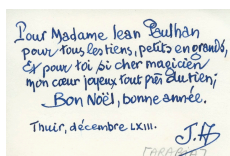 Pour Madame Jean Paulhan
pour tous les tiens, petits en grands,
Et pour toi si cher magicien
mon cœur joyeux tout près du tien;
Bon Noël, bonne année.
Thuir, décembre LXIII.